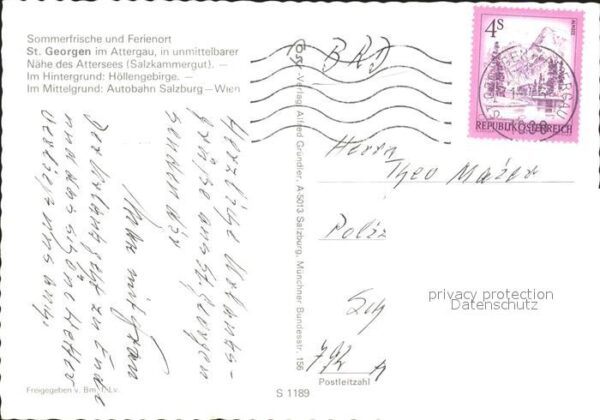 Sommerfrische und Ferienort
St. Georgen im Attergau, in unmittelbarer
Nähe des Attersees (Salzkammergut). —
Im Hintergrund: Höllengebirge. —
Im Mittelgrund: Autobahn Salzburg—Wien
Herzliche Urlaubs-
grüße aus St. Georgen
senden dir
Der Urlaub geht zu Ende
nun das schöne Wetter
Freigegeben v. Bm. f. Lv.
Verlag Alfred Gründler, A-5013 Salzburg, Münchner Bundesstr. 156
S 1189
BRD
4s
REPUBLIK ÖSTERREICH
Herrn
Theo
Postleitzahl
privacy protection
Datenschutz